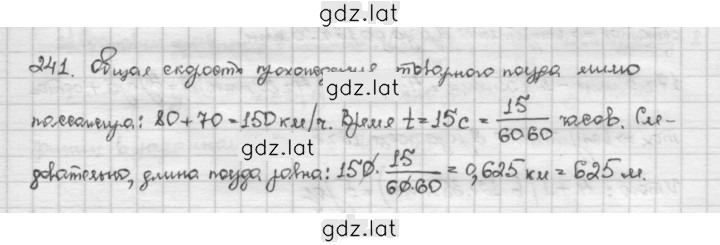 gdz.lat
241. Общая скорость прохождения товарного поезда мимо
пассажира: 80 + 70 = 150 км/ч. Время t = 15 с = 15/(60·60) часов. Сле-
gdz.lat
довательно, длина поезда равна: 150 · 15/(60·60) = 0,625 км = 625 м.
gdz.lat